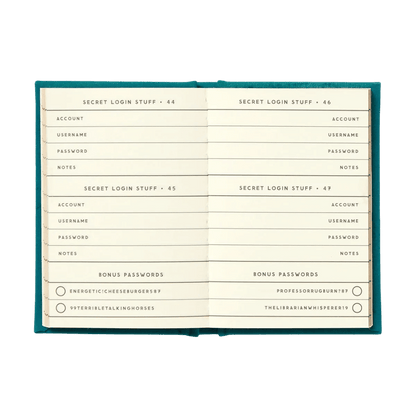 SECRET LOGIN STUFF • 44
ACCOUNT
USERNAME
PASSWORD
NOTES
SECRET LOGIN STUFF • 45
ACCOUNT
USERNAME
PASSWORD
NOTES
BONUS PASSWORDS
SECRET LOGIN STUFF • 46
ACCOUNT
USERNAME
PASSWORD
NOTES
SECRET LOGIN STUFF • 49
ACCOUNT
USERNAME
PASSWORD
NOTES
BONUS PASSWORDS